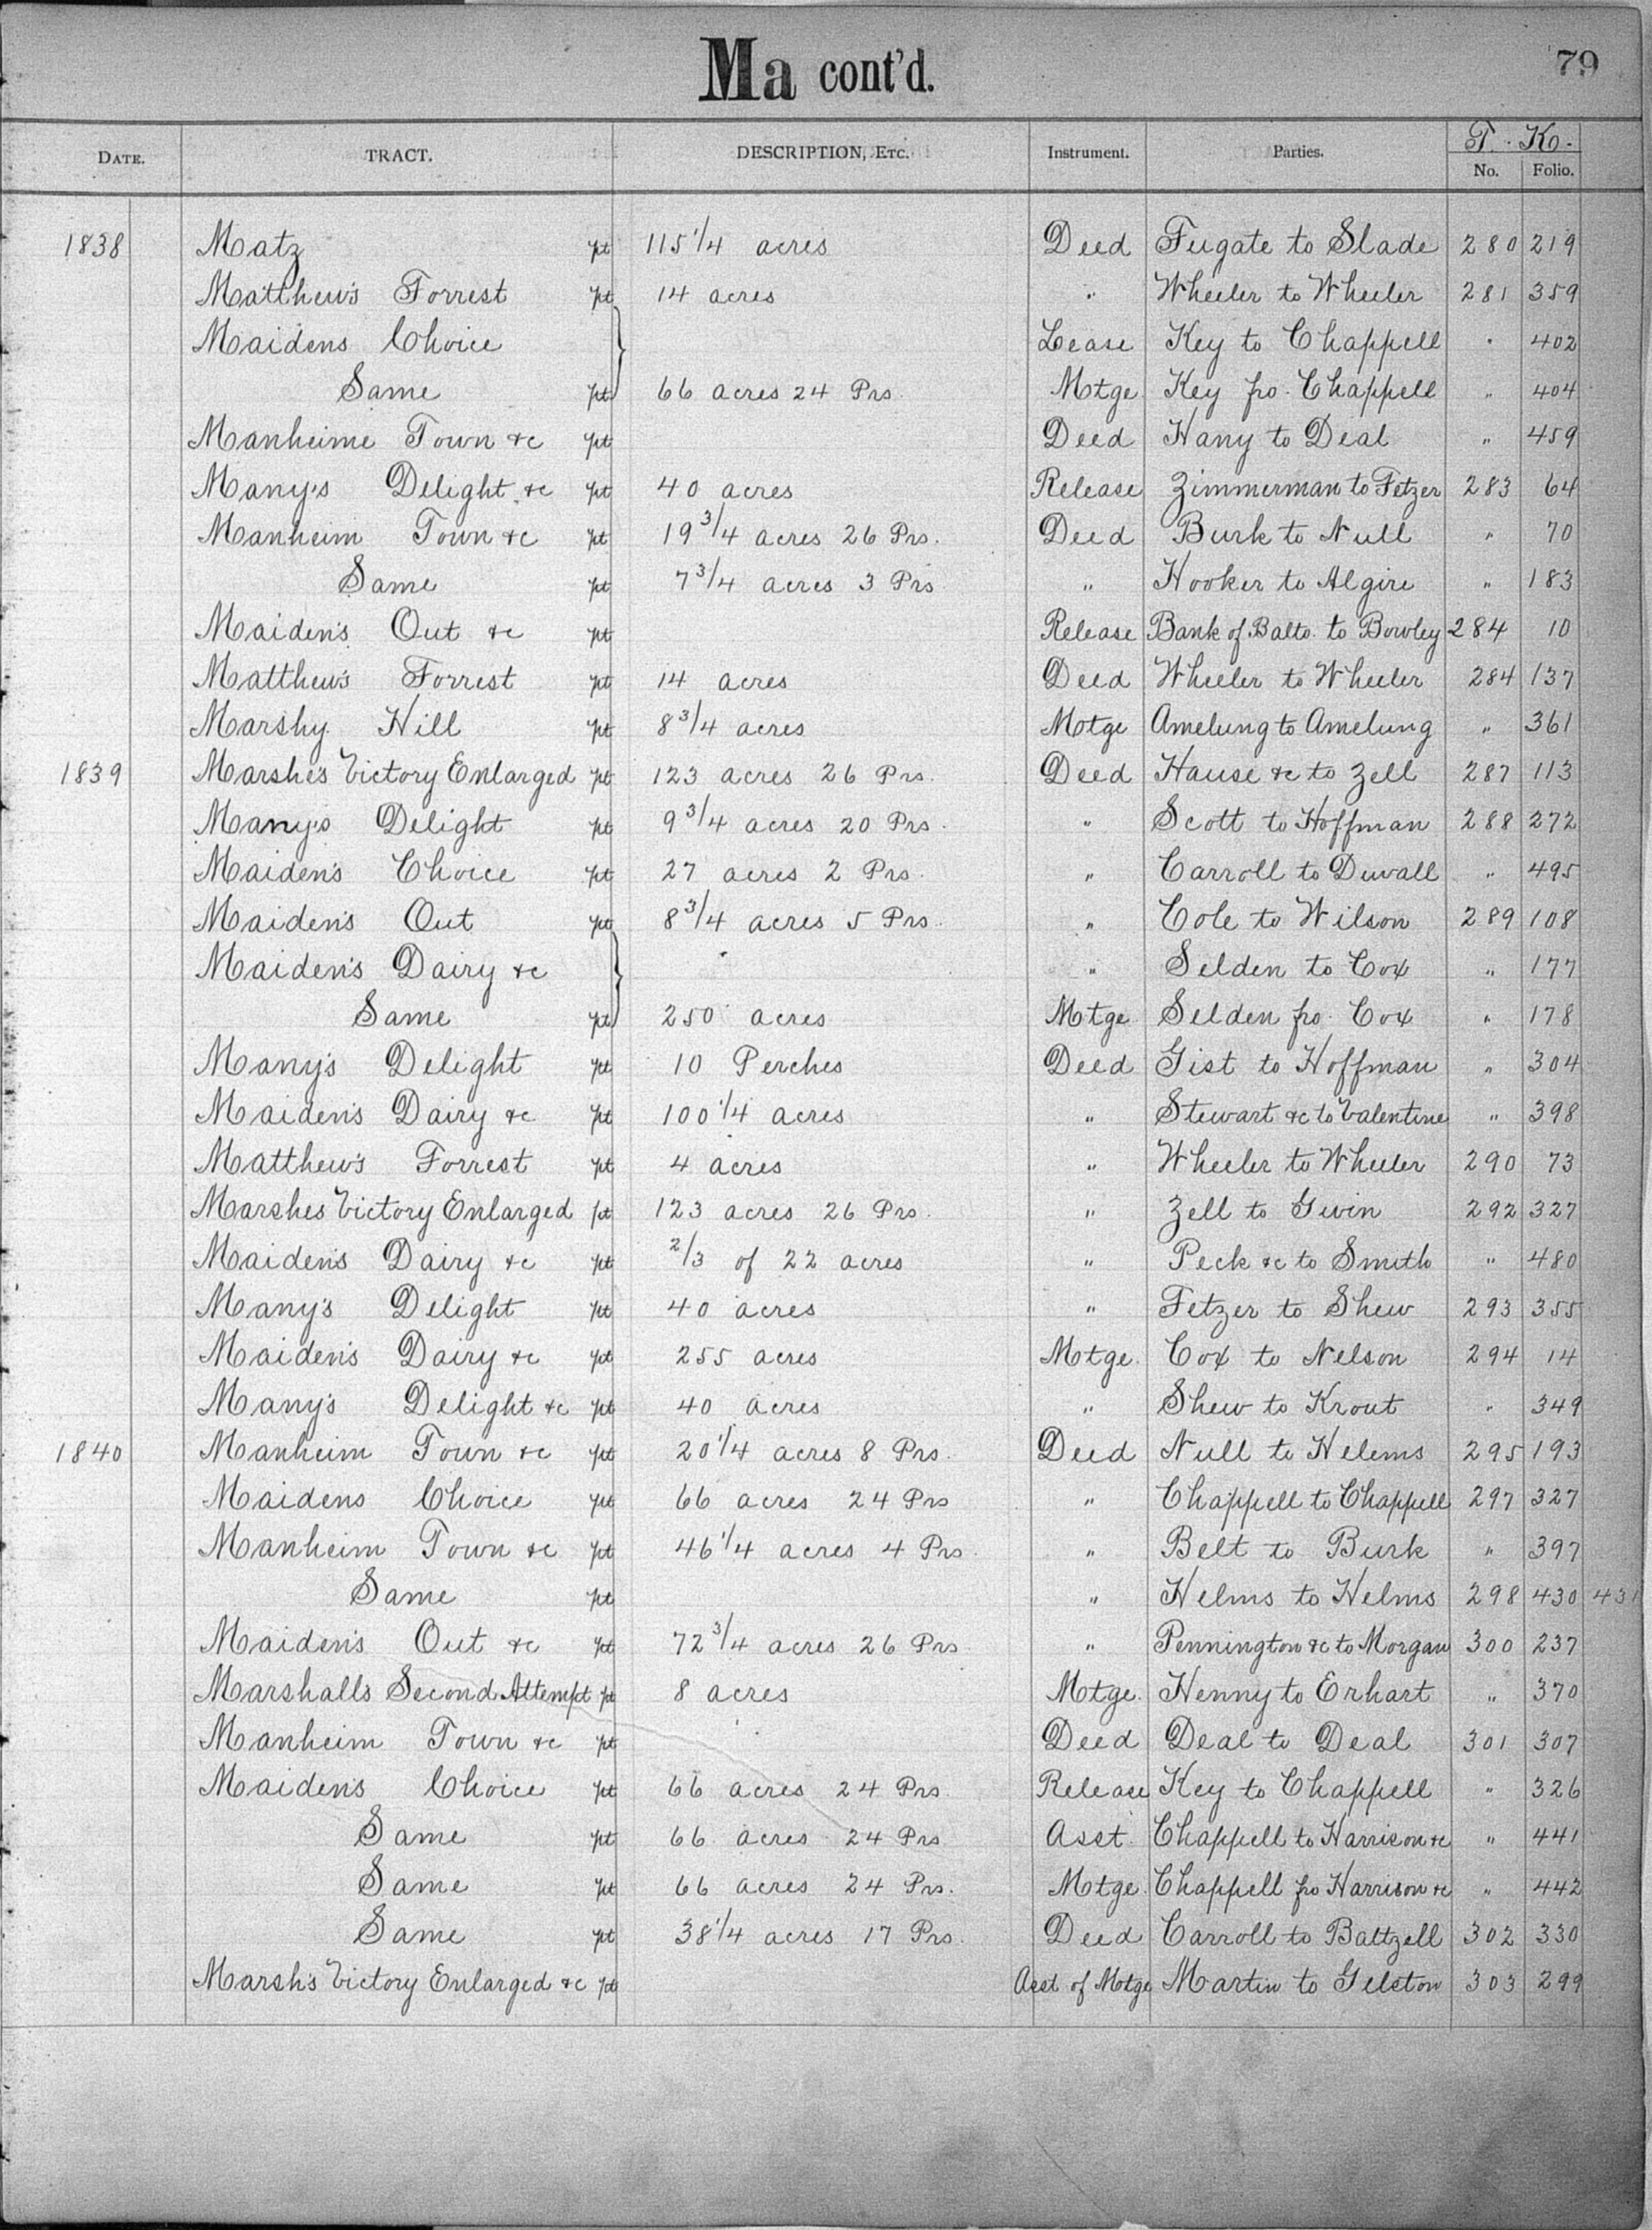 Ma cont'd.
79
DATE. TRACT. DESCRIPTION, ETC. Instrument. Parties. T. K. No. Folio.
1838 Matz pt 115 1/4 acres Deed Fugate to Slade 280 219
Matthew's Forrest pt 14 acres " Wheeler to Wheeler 281 359
Maidens Choice Lease Key to Chappell " 402
Same pt 66 acres 24 Prs. Motge Key fro. Chappell " 404
Manheime Town &c pt Deed Hany to Deal " 459
Many's Delight &c pt 40 acres Release Zimmerman to Fetzer 283 64
Manheim Town &c pt 19 3/4 acres 26 Prs. Deed Burk to Null " 70
Same pt 7 3/4 acres 3 Prs. " Hooker to Algire " 183
Maiden's Out &c pt Release Bank of Balto. to Bowley 284 10
Matthew's Forrest pt 14 acres Deed Wheeler to Wheeler 284 137
Marshy Hill pt 8 3/4 acres Motge Amelung to Amelung " 361
1839 Marshe's Victory Enlarged pt 123 acres 26 Prs. Deed Hause &c to Zell 287 113
Many's Delight pt 9 3/4 acres 20 Prs. " Scott to Hoffman 288 272
Maiden's Choice pt 27 acres 2 Prs. " Carroll to Duvall " 495
Maiden's Out pt 8 3/4 acres 5 Prs. " Cole to Wilson 289 108
Maiden's Dairy &c " Selden to Cox " 177
Same pt 250 acres Motge Selden fro. Cox " 178
Many's Delight pt 10 Perches Deed Gist to Hoffman " 304
Maiden's Dairy &c pt 100 1/4 acres " Stewart &c to Valentine " 398
Matthew's Forrest pt 4 acres " Wheeler to Wheeler 290 73
Marshes Victory Enlarged pt 123 acres 26 Prs. " Zell to Gwin 292 327
Maiden's Dairy &c pt 2/3 of 22 acres " Peck &c to Smith " 480
Many's Delight pt 40 acres " Fetzer to Shew 293 355
Maiden's Dairy &c pt 255 acres Motge. Cox to Nelson 294 14
Many's Delight &c pt 40 acres " Shew to Krout " 349
1840 Manheim Town &c pt 20 1/4 acres 8 Prs. Deed Null to Helems 295 193
Maidens Choice pt 66 acres 24 Prs " Chappell to Chappell 297 327
Manheim Town &c pt 46 1/4 acres 4 Prs " Belt to Burk " 397
Same pt " Helms to Helms 298 430 431
Maiden's Out &c pt 72 3/4 acres 26 Prs " Pennington &c to Morgan 300 237
Marshalls Second Attempt pt 8 acres Motge. Henny to Erhart " 370
Manheim Town &c pt Deed Deal to Deal 301 307
Maiden's Choice pt 66 acres 24 Prs. Release Key to Chappell " 326
Same pt 66 acres 24 Prs Asst. Chappell to Harrison &c " 441
Same pt 66 acres 24 Prs. Motge. Chappell fro Harrison &c " 442
Same pt 38 1/4 acres 17 Prs. Deed Carroll to Baltzell 302 330
Marsh's Victory Enlarged &c pt Asst. of Motge Martin to Gelston 303 299